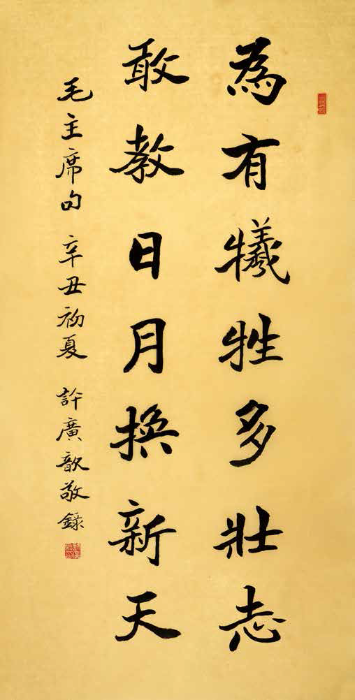 為有犧牲多壯志
敢教日月換新天
毛主席句 辛丑初夏 許廣歆敬錄